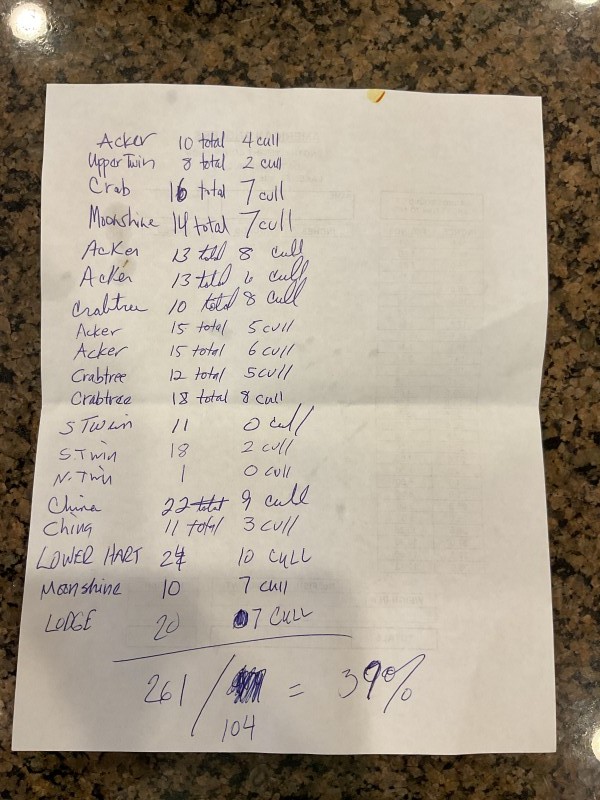 Acker 10 total 4 cull
Upper Twin 8 total 2 cull
Crab 16 total 7 cull
Moonshine 14 total 7 cull
Acker 13 total 8 cull
Acker 13 total 6 cull
Crabtree 10 total 8 cull
Acker 15 total 5 cull
Acker 15 total 6 cull
Crabtree 12 total 5 cull
Crabtree 18 total 8 cull
S Twin 11 0 cull
S. Twin 18 2 cull
N. Twin 1 0 cull
China 22 total 9 cull
China 11 total 3 cull
LOWER HART 24 10 CULL
Moonshine 10 7 cull
LODGE 20 7 CULL
261 / = 39%
104